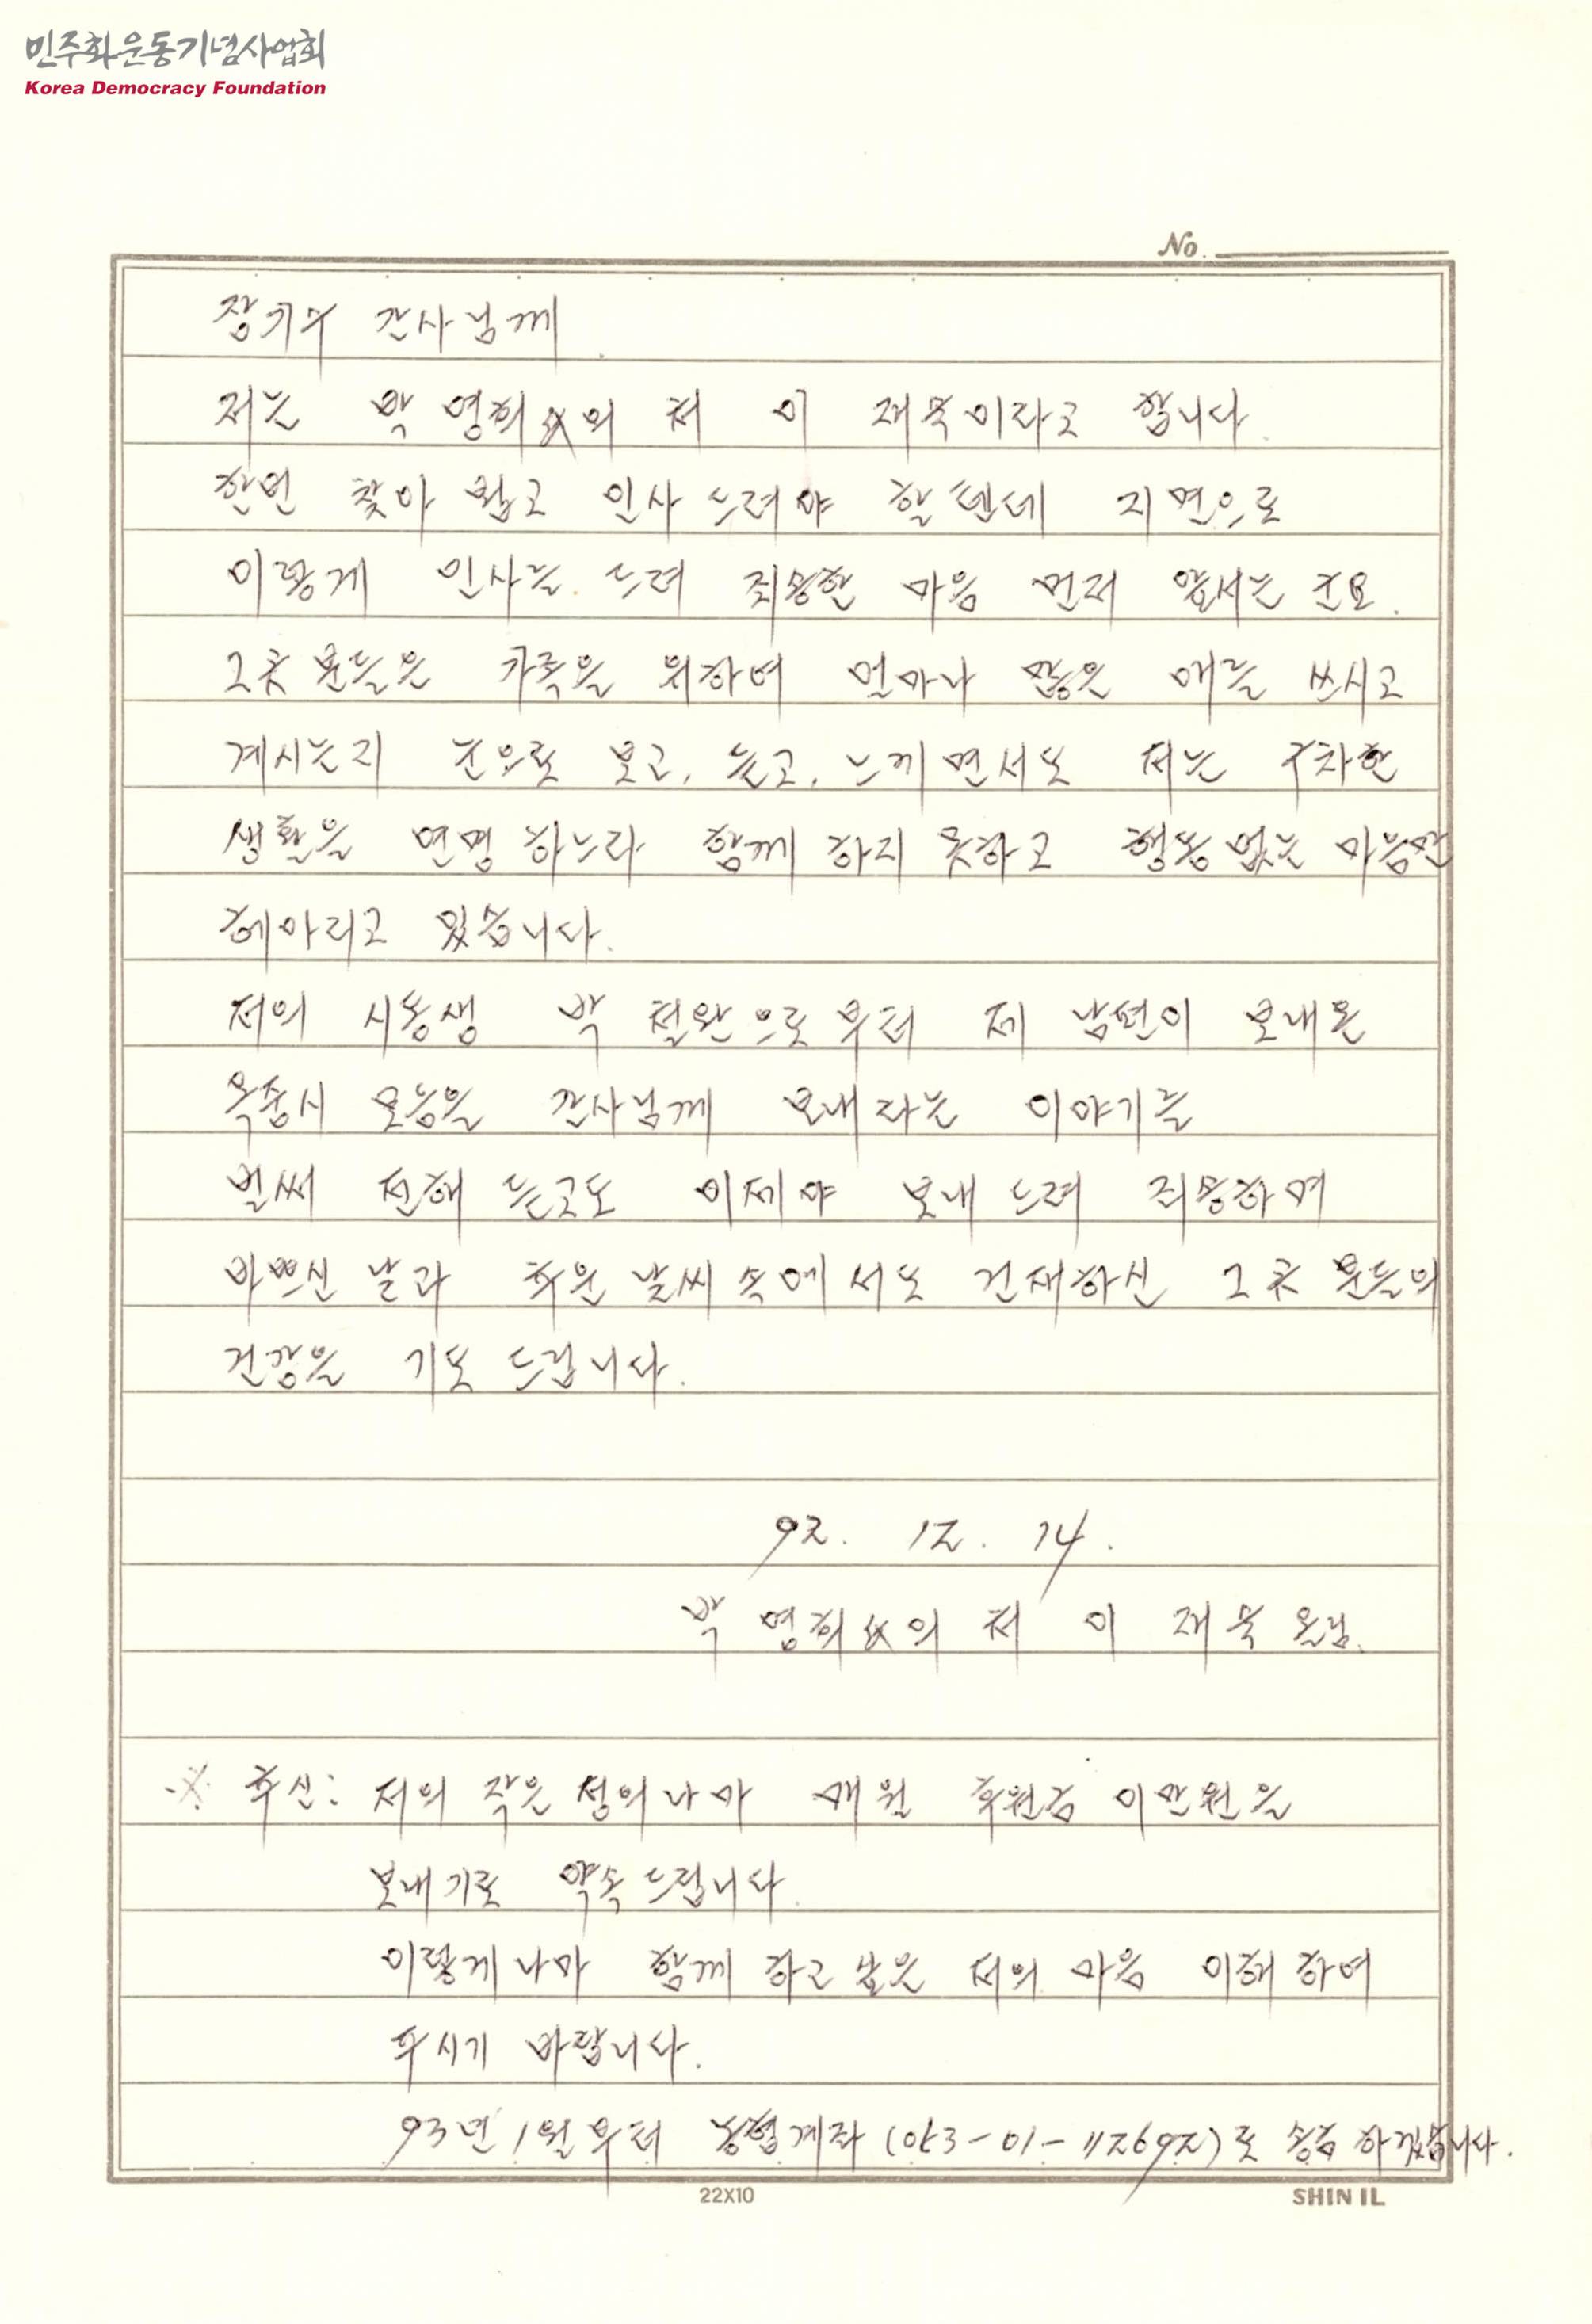 민주화운동기념사업회
Korea Democracy Foundation
No.
장기수 간사님께
저는 박 영희씨의 처 이 재묵이라고 합니다.
한번 찾아 뵙고 인사 드려야 할텐데 지면으로
이렇게 인사를 드려 죄송한 마음 먼저 앞서는군요.
그곳 분들은 가족을 위하여 얼마나 많은 애를 쓰시고
계시는지 눈으로 보고, 듣고, 느끼면서도 저는 구차한
생활을 연명 하느라 함께 하지 못하고 행동 없는 마음만
헤아리고 있습니다.
저의 시동생 박 철완으로부터 제 남편이 보내온
옥중시 모음을 간사님께 보내라는 이야기를
벌써 전해 듣고도 이제야 보내 드려 죄송하며
바쁘신 날과 추운 날씨 속에서도 건재하신 그곳 분들의
건강을 기도 드립니다.
92. 12. 14.
박 영희씨의 처 이 재묵 올림.
※ 추신: 저의 작은 성의나마 매월 후원금 이만원을
보내기로 약속 드립니다.
이렇게나마 함께 하고 싶은 저의 마음 이해 하여
주시기 바랍니다.
93년 1월부터 농협계좌 (053-01-112692)로 송금 하겠습니다.
22X10
SHIN IL